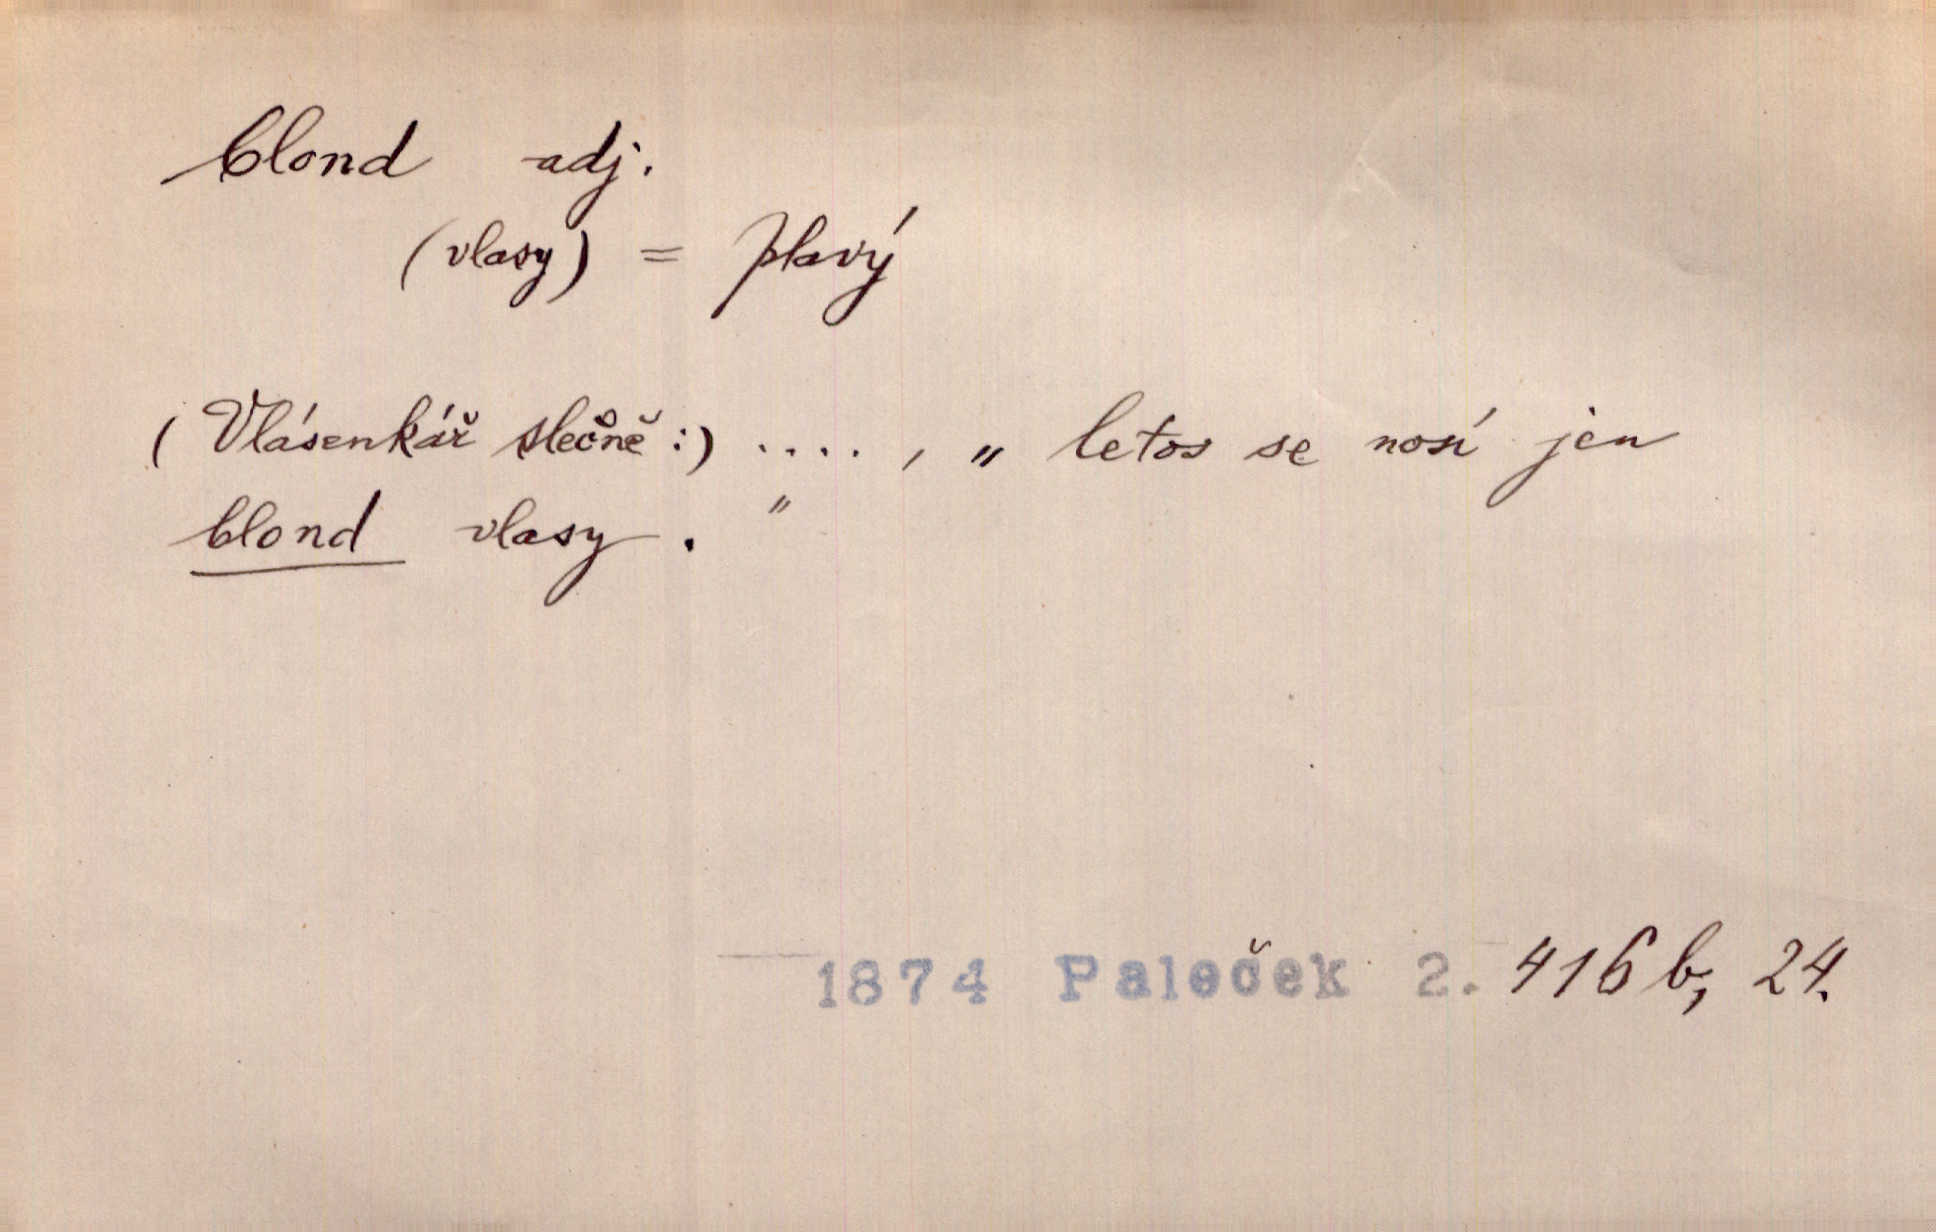 blond adj.
(vlasy) = plavý
(Vlásenkář slečně :) .... , „ letos se nosí jen
blond vlasy . "
1874 Paleček 2. 416 b, 24.